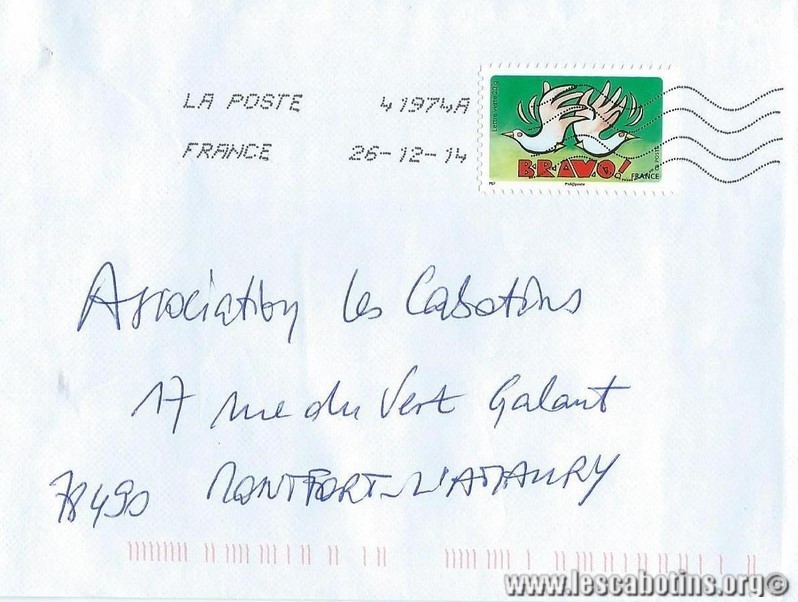 LA POSTE 41974A
FRANCE 26-12-14
Lettre Verte 20g
BRAVO!
FRANCE
LA POSTE
Phil@poste
Association les Cabotins
17 rue du Vert Galant
78490 MONTFORT-L'AMAURY
www.lescabotins.org©